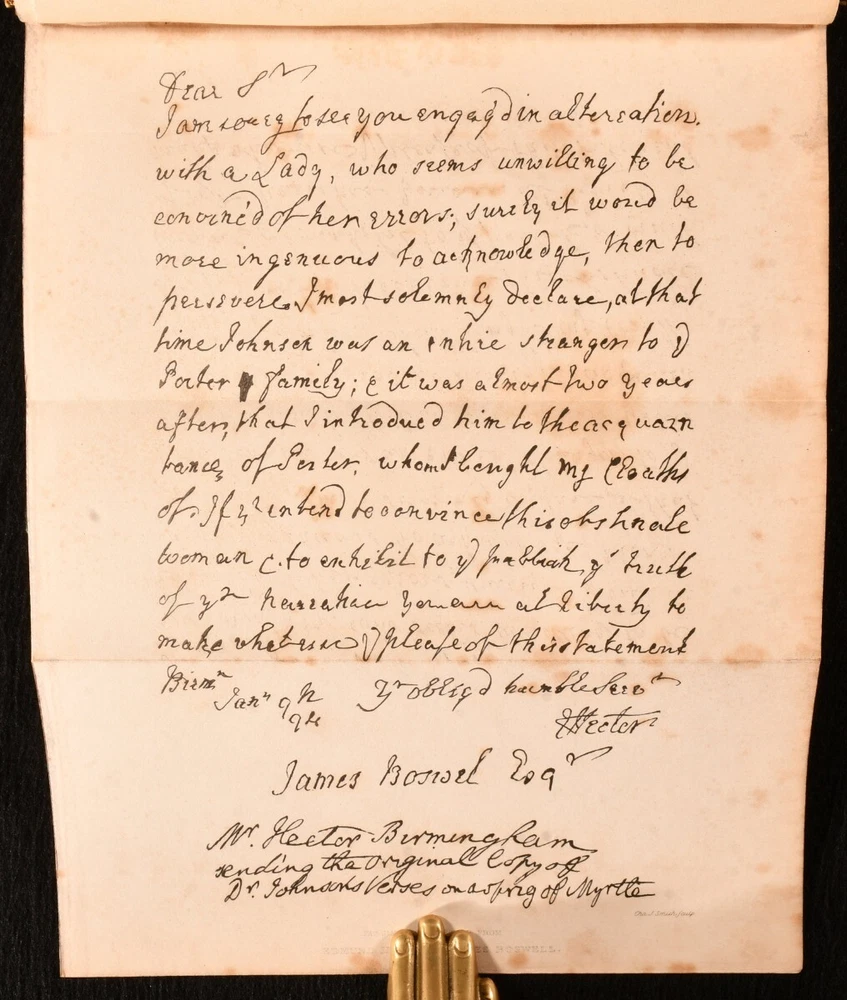 Dear Sr
I am sorry to see you engag'd in altercation.
with a Lady, who seems unwilling to be
convinc'd of her errors; surely it would be
more ingenuous to acknowledge, then to
persevere. I most solemnly declare, at that
time Johnson was an entire stranger to ye
Porter family; & it was almost two years
after, that I introduced him to the acquain
tance of Porter, whom I bought my Cloaths
of. If yu intend to convince this obstinate
woman & to exhibit to ye publick ye truth
of yr narrative you are at liberty to
make whatever ye please of this statement
Birmm
Jany 9th
94
Yr oblig'd humble Servt
EHector
James Boswel Esqr
Mr. Hector Birmingham
sending the original Copy of
Dr. Johnson's Verses on a sprig of Myrtle
FROM
BOSWELL.